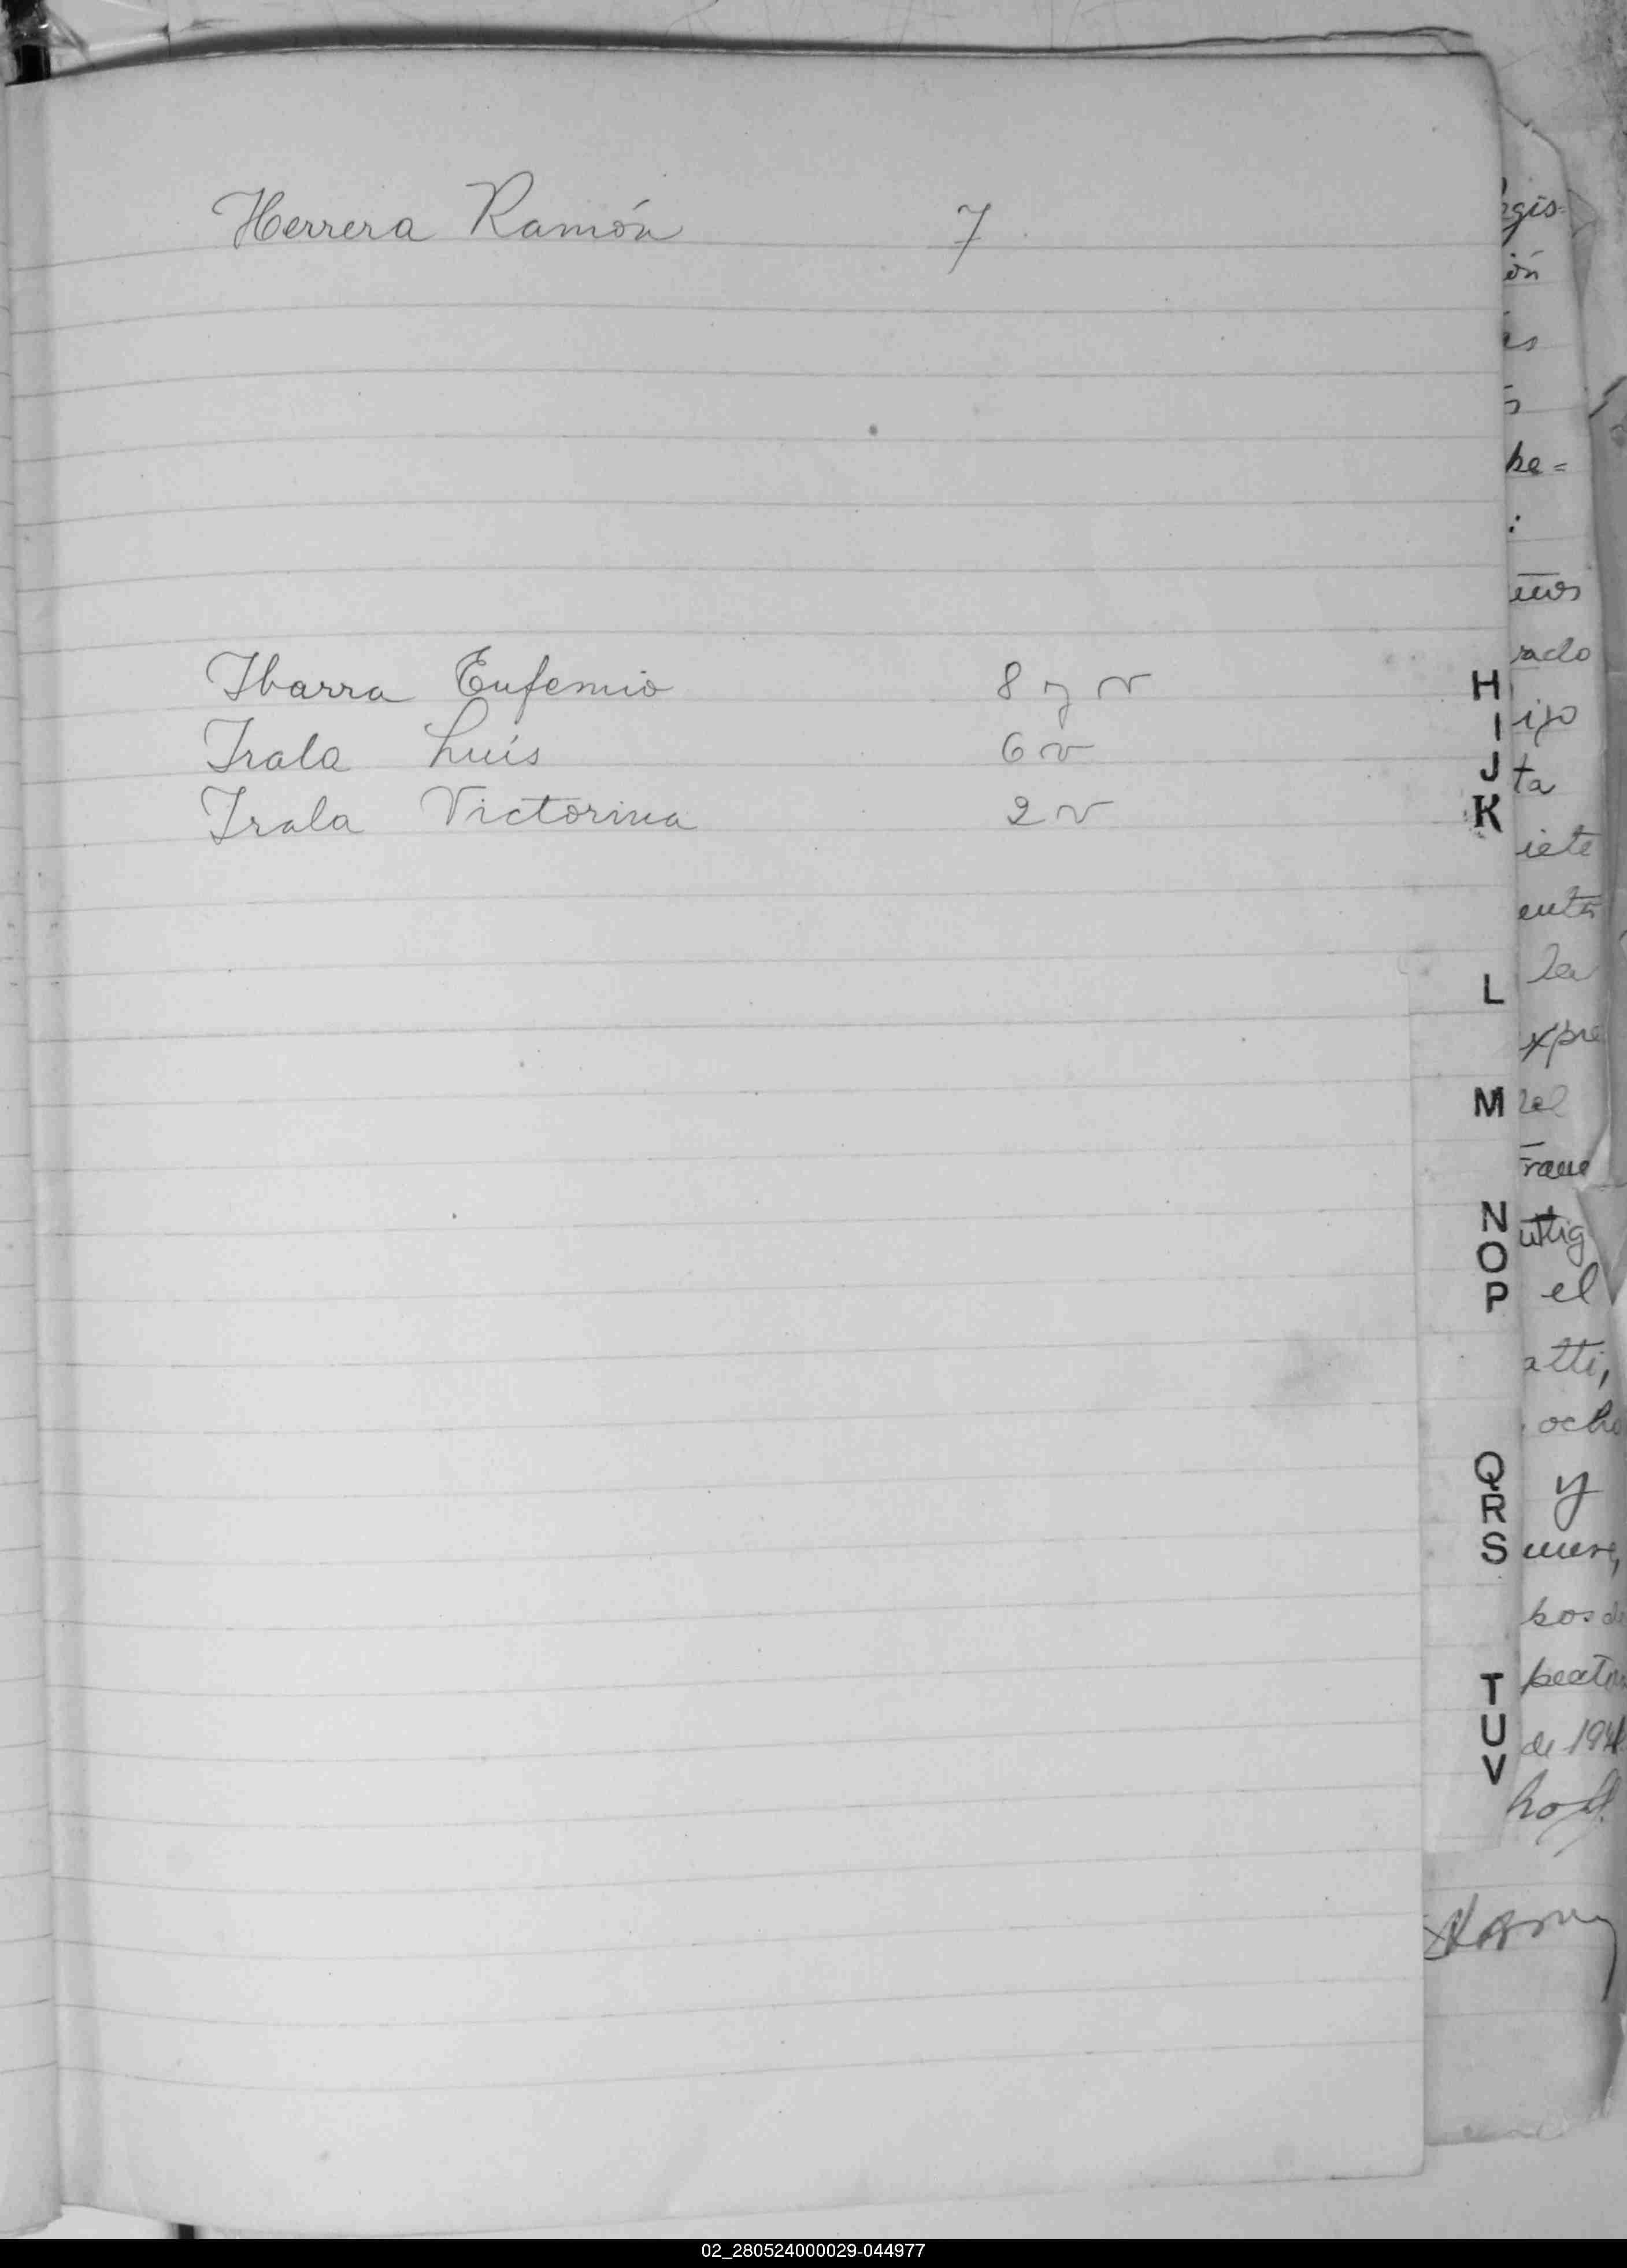 Herrera Ramón 7
Ibarra Eufemio 8 y v
Irala Luis 6 v
Irala Victorina 2 v
H
I
J
K
L
M
N
O
P
Q
R
S
T
U
V
ón
ta
la
el
atti,
ocho
y
02_280524000029-044977